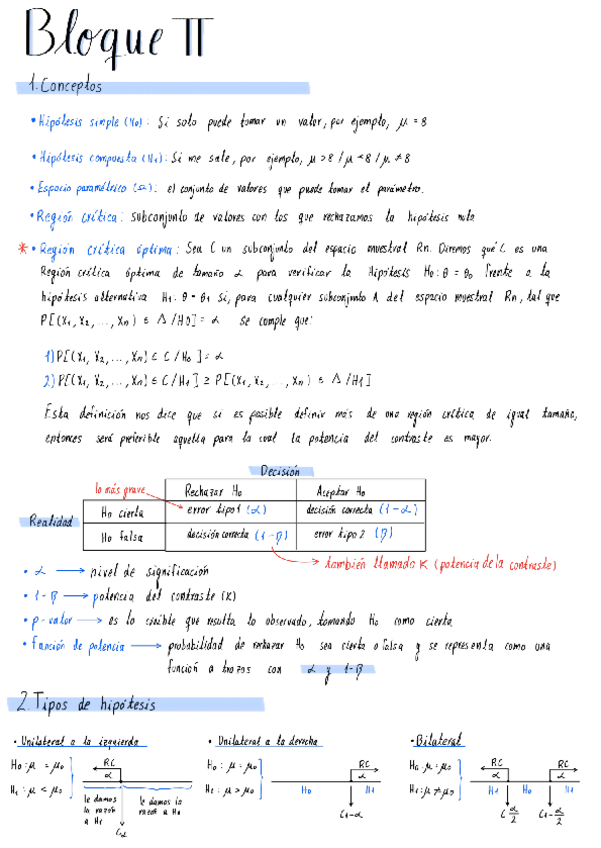 Bloque II
1. Conceptos
• Hipótesis simple (H₀): Si solo puede tomar un valor, por ejemplo, μ = 8
• Hipótesis compuesta (H₁): Si me sale, por ejemplo, μ > 8 / μ < 8 / μ ≠ 8
• Espacio paramétrico (Ω): el conjunto de valores que puede tomar el parámetro.
• Región crítica: subconjunto de valores con los que rechazamos la hipótesis nula
* • Región crítica óptima: Sea C un subconjunto del espacio muestral Rn. Diremos que C es una
Región crítica óptima de tamaño α para verificar la Hipótesis H₀: θ = θ₀ frente a la
hipótesis alternativa H₁: θ = θ₁ si, para cualquier subconjunto A del espacio muestral Rn, tal que
P[(X₁, X₂, ..., Xn) ∈ A / H0] = α se comple que:
1) P[(X₁, X₂, ..., Xn) ∈ C / H₀] = α
2) P[(X₁, X₂, ..., Xn) ∈ C / H₁] ≥ P[(X₁, X₂, ..., Xn) ∈ A / H1]
Esta definición nos dice que si es posible definir más de una región crítica de igual tamaño,
entonces será preferible aquella para la cual la potencia del contraste es mayor.
Decisión
lo más grave
Rechazar H₀ Aceptar H₀
Realidad
H₀ cierta error tipo 1 (α) decisión correcta (1 - α)
H₀ falsa decisión correcta (1 - β) error tipo 2 (β)
también llamado K (potencia de la contraste)
• α → nivel de significación
• 1 - β → potencia del contraste (K)
• p-valor → es lo creíble que resulta lo observado, tomando H₀ como cierta
• función de potencia → probabilidad de rechazar H₀ sea cierta o falsa y se representa como una
función a trozos con α y 1-β
2. Tipos de hipótesis
• Unilateral a la izquierda • Unilateral a la derecha • Bilateral
H₀: μ = μ₀ RC α H₀: μ = μ₀ RC α H₀: μ = μ₀ RC α RC α
H₁: μ < μ₀ H₁: μ > μ₀ H₀ H₁ H₁: μ ≠ μ₀ H₁ H₀ H₁
le damos la razón a H₁ le damos la razón a H₀ C₁-α C α/2 C₁-α/2
Cα